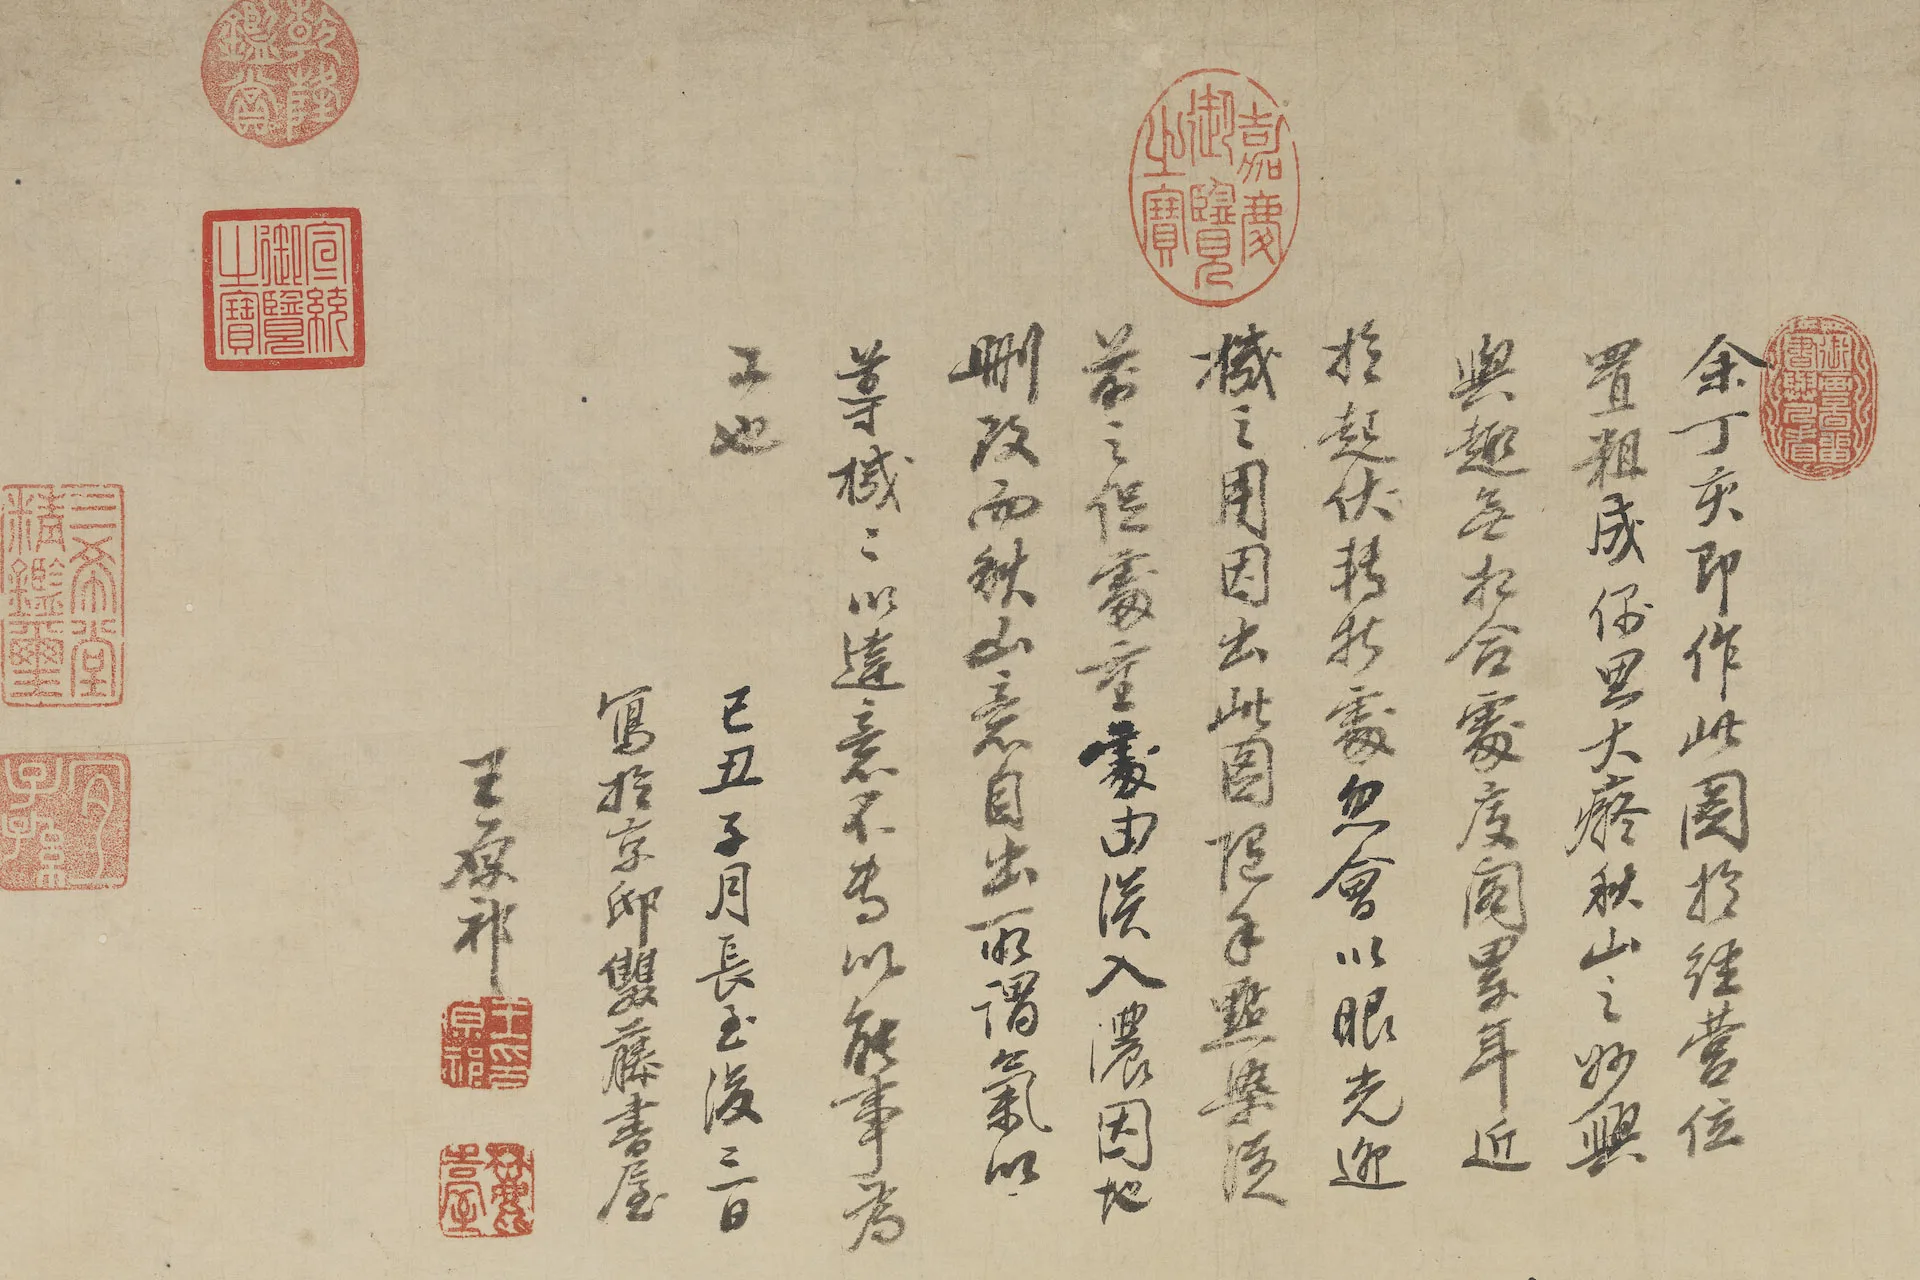 余丁亥即作此圖於經營位
置粗成偶思大癡秋山之妙與
興趣無相合處庋閣累年近
於起伏轉折處忽會以眼光迎
機之用因出此圖隨手點染從
前之促處重處由淡入濃因地
刪改而秋山意自出所謂氣以
導機〻以達意不專以能事為
工也
己丑子月長至後三日
寫於京邸雙藤書屋
王原祁
王原祁印
麓臺
嘉慶御覽之寶
乾隆鑑賞
宣統御覽之寶
三希堂精鑑璽
宜子孫